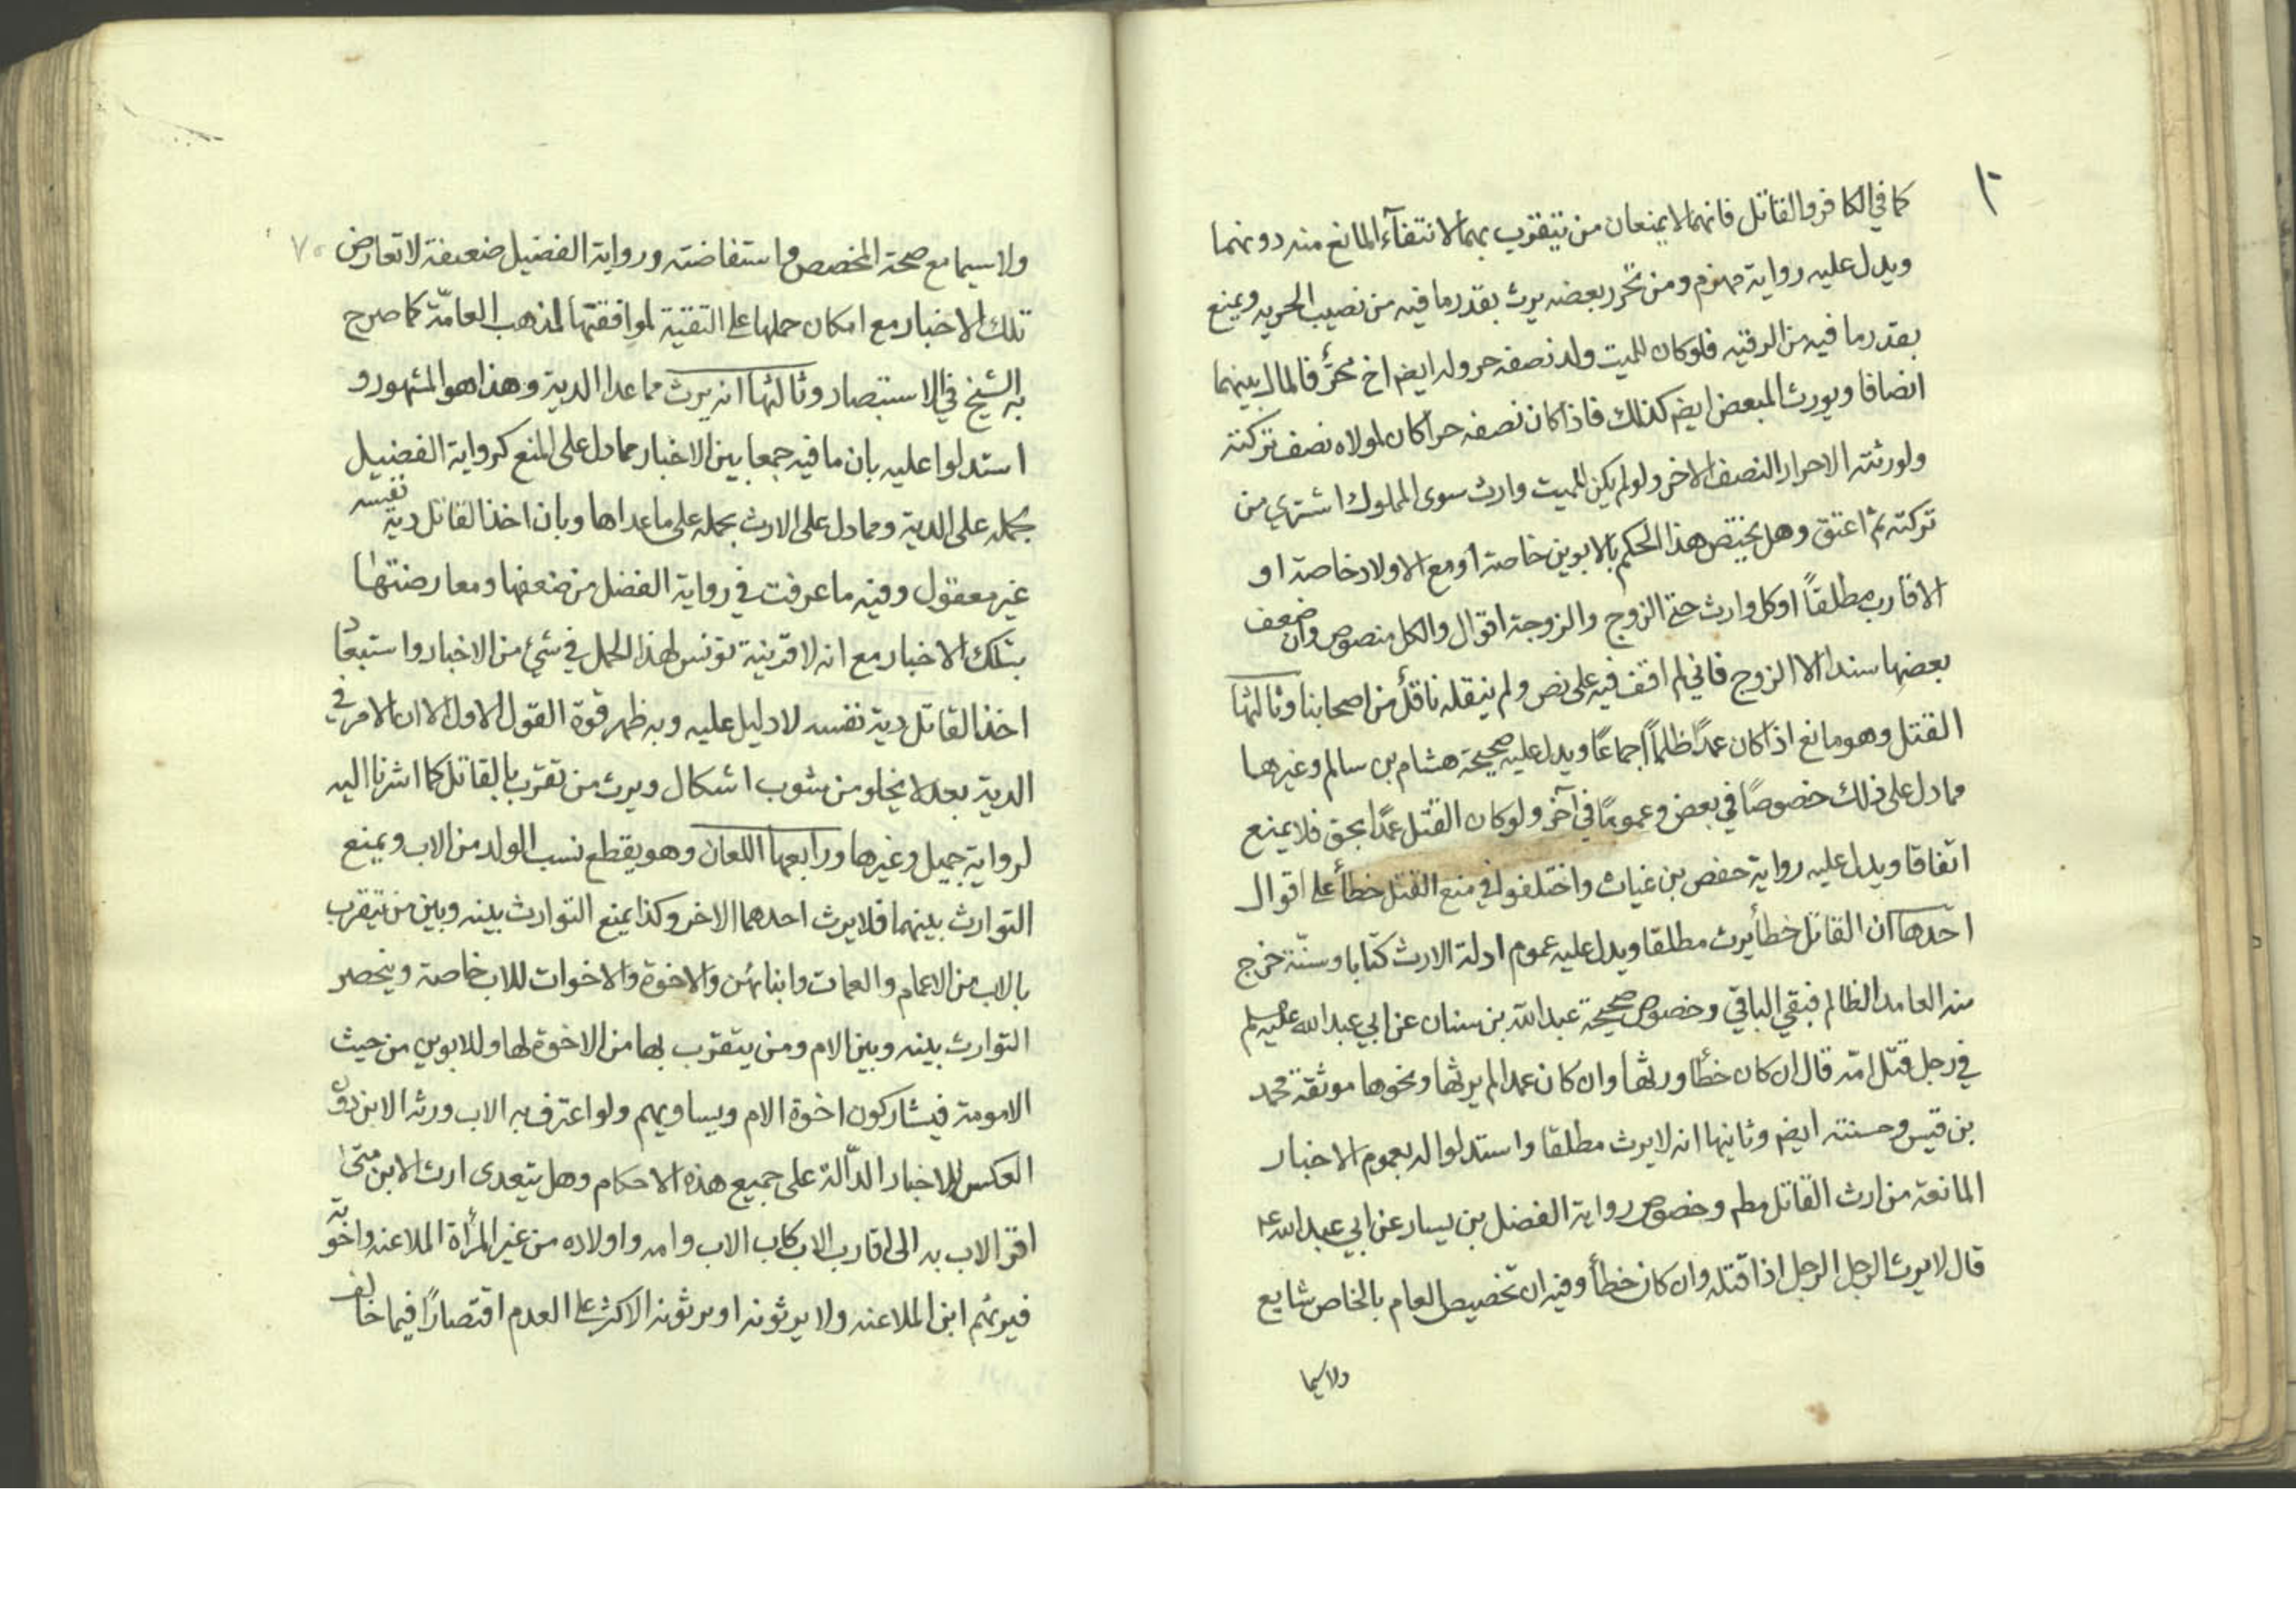 ١٠
كما في الكافر والقاتل فانهما لا يمنعان من يتقرب بهما لانتفآء المانع منه دونهما
ويدل عليه رواية مهزم ومن تحرر بعضه يرث بقدر ما فيه من نصيب الحريه ويمنع
بقدر ما فيه من الرقيه فلو كان للميت ولد نصفه حر وله ايضم اخ محرّ فالمال بينهما
انصافا ويورث المبعض ايضم كذلك فاذا كان نصفه حرا كان لمولاه نصف تركته
ولورثته الاحرار النصف الاخر ولو لم يكن للميت وارث سوى المملوك اشتري من
تركته ثم اعتق وهل يختص هذا الحكم بالابوين خاصة او مع الاولاد خاصة او
الاقارب مطلقاً او كل وارث حتى الزوج والزوجة اقوال والكل منصوص وان ضعف
بعضها سندا الا الزوج فاني لم اقف فيه على نص ولم ينقله ناقل من اصحابنا وثالثها
القتل وهو مانع اذا كان عمدًا ظلماً اجماعًا ويدل عليه صحيحة هشام بن سالم وغيرها
مما دل على ذلك خصوصًا في بعض وعمومًا في آخر ولو كان القتل عمدًا بحق فلا يمنع
اتفاقا ويدل عليه رواية حفص بن غياث واختلفوا في منع القتل خطأ على اقوال
احدها ان القاتل خطأ يرث مطلقا ويدل عليه عموم ادلة الارث كتابا وسنّة خرج
منه العامد الظالم فبقي الباقي وخصوص صحيحة عبد الله بن سنان عن ابي عبد الله عليه السلم
في رجل قتل امّه قال ان كان خطأ ورثها وان كان عمدا لم يرثها ونحوها موثقة محمد
بن قيس وحسنته ايضم وثانيها انه لا يرث مطلقا واستدلوا له بعموم الاخبار
المانعة من ارث القاتل مطم وخصوص رواية الفضل بن يسار عن ابي عبد الله ع
قال لا يرث الرجل الرجل اذا قتله وان كان خطأ وفيه ان تخصيص العام بالخاص شايع
ولاسيما
٧٠
ولاسيما مع صحة المخصص واستفاضته ورواية الفضيل ضعيفة لا تعارض
تلك الاخبار مع امكان حملها على التقية لموافقتها لمذهب العامّة كما صرح
به الشيخ في الاستبصار وثالثها انه يرث مما عدا الدية وهذا هو المشهور و
استدلوا عليه بان ما فيه جمعا بين الاخبار مما دل على المنع كرواية الفضيل
بحمله على الدية ومما دل على الارث بحمله على ما عداها وبان اخذ القاتل دية نفسه
غير معقول وفيه ما عرفت في رواية الفضل من ضعفها ومعارضتها
بتلك الاخبار مع انه لا قرينية تونس لهذا الحمل في شئ من الاخبار واستبعاد
اخذ القاتل دية نفسه لا دليل عليه وبه ظهر قوة القول الاول الا ان الامر في
الدية بعد لا يخلو من شوب اشكال ويرث من تقرّب بالقاتل كما اشرنا اليه
لرواية جميل وغيرها ورابعها اللعان وهو يقطع نسب الولد من الاب ويمنع
التوارث بينهما فلا يرث احدهما الاخر وكذا يمنع التوارث بينه وبين من يتقرب
بالاب من الاعمام والعمات وابنائهن والاخوة والاخوات للاب خاصة وينحصر
التوارث بينه وبين الام ومن يتقرب بها من الاخوة لها وللابوين من حيث
الامومة فيشاركون اخوة الام ويساويهم ولو اعترف به الاب ورثه الابن دون
العكس للاخبار الدآلة على جميع هذه الاحكام وهل يتعدى ارث الابن متى
اقر الاب به الى اقارب الاب كاب الاب وامه واولاده من غير المرأة الملاعنه واخوته
فيرثهم ابن الملاعنه ولا يرثونه او يرثونه الاكثر على العدم اقتصارًا فيما خالف